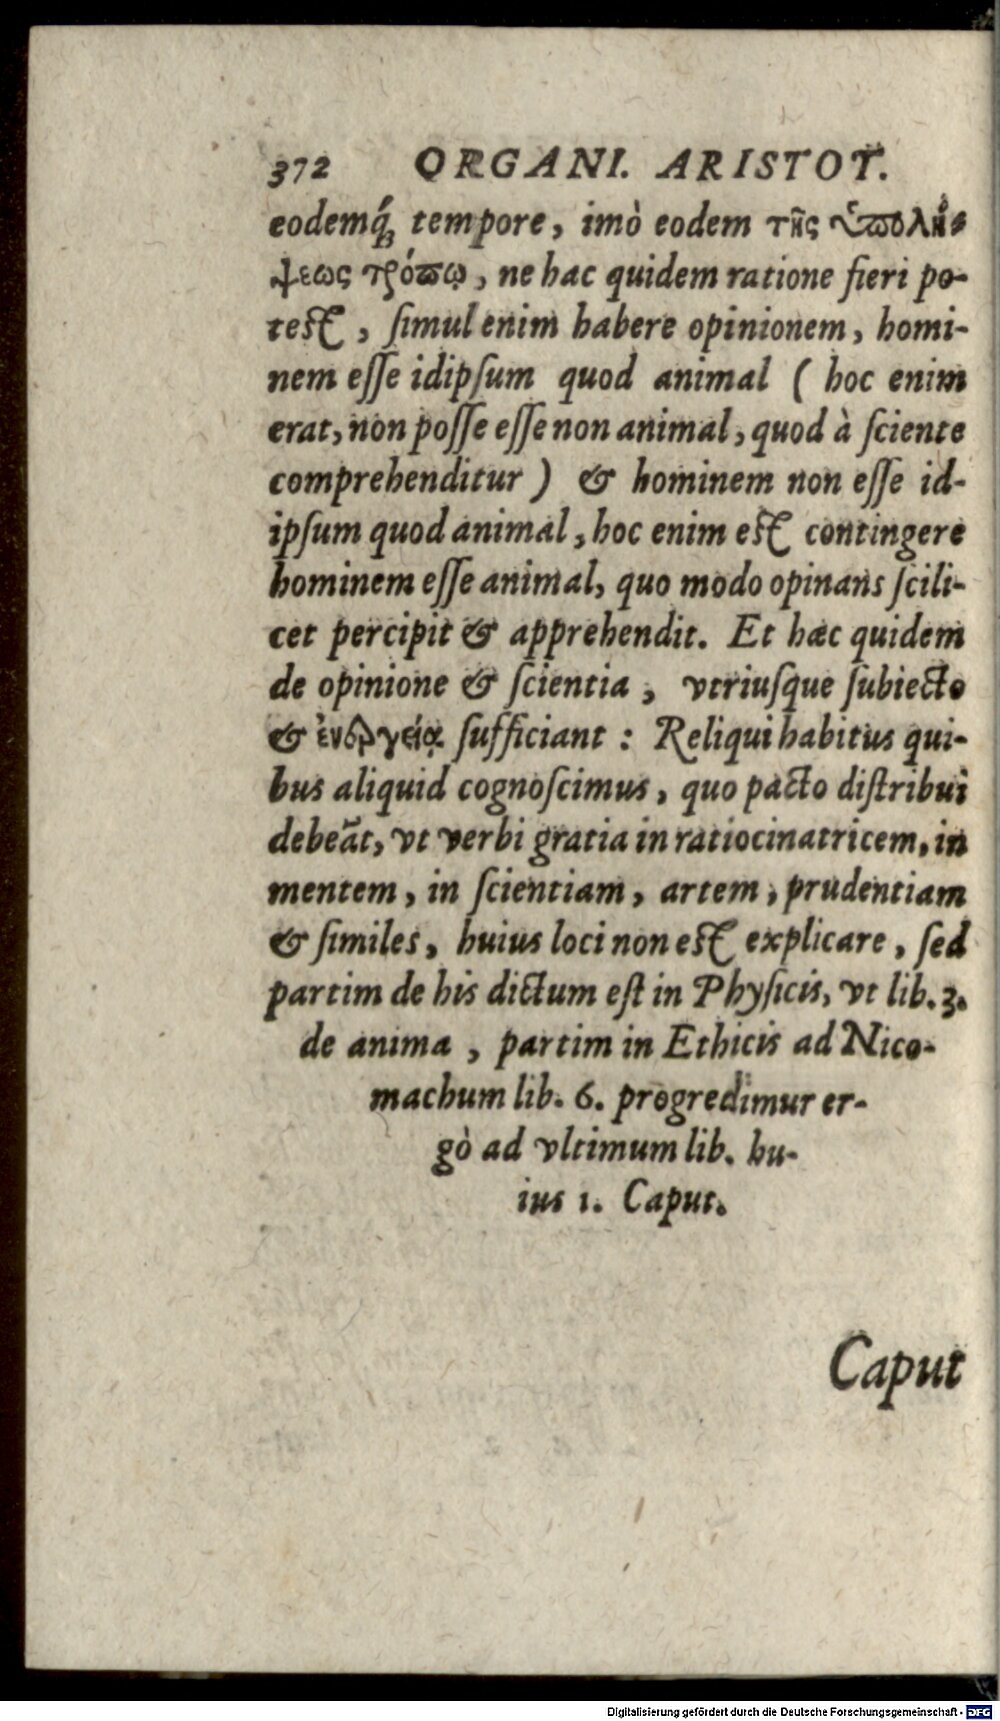 372 ORGANI. ARISTOT.
eodemq́; tempore, imò eodem τῆς ὑπολή-
ψεως τρόπῳ, ne hac quidem ratione fieri po-
test, ſimul enim habere opinionem, homi-
nem eſſe idipſum quod animal ( hoc enim
erat, non poſſe eſſe non animal, quod à ſciente
comprehenditur ) & hominem non eſſe id-
ipſum quod animal, hoc enim est contingere
hominem eſſe animal, quo modo opinans ſcili-
cet percipit & apprehendit. Et hæc quidem
de opinione & ſcientia, vtriuſque ſubiecto
& ἐνεργείᾳ ſufficiant : Reliqui habitus qui-
bus aliquid cognoſcimus, quo pacto diſtribui
debeãt, vt verbi gratia in ratiocinatricem, in
mentem, in ſcientiam, artem, prudentiam
& ſimiles, huius loci non est explicare, ſed
partim de his dictum eſt in Phyſicis, vt lib. 3.
de anima, partim in Ethicis ad Nico-
machum lib. 6. progredimur er-
gò ad vltimum lib. hu-
ius 1. Caput.
Caput
Digitalisierung gefördert durch die Deutsche Forschungsgemeinschaft - DFG